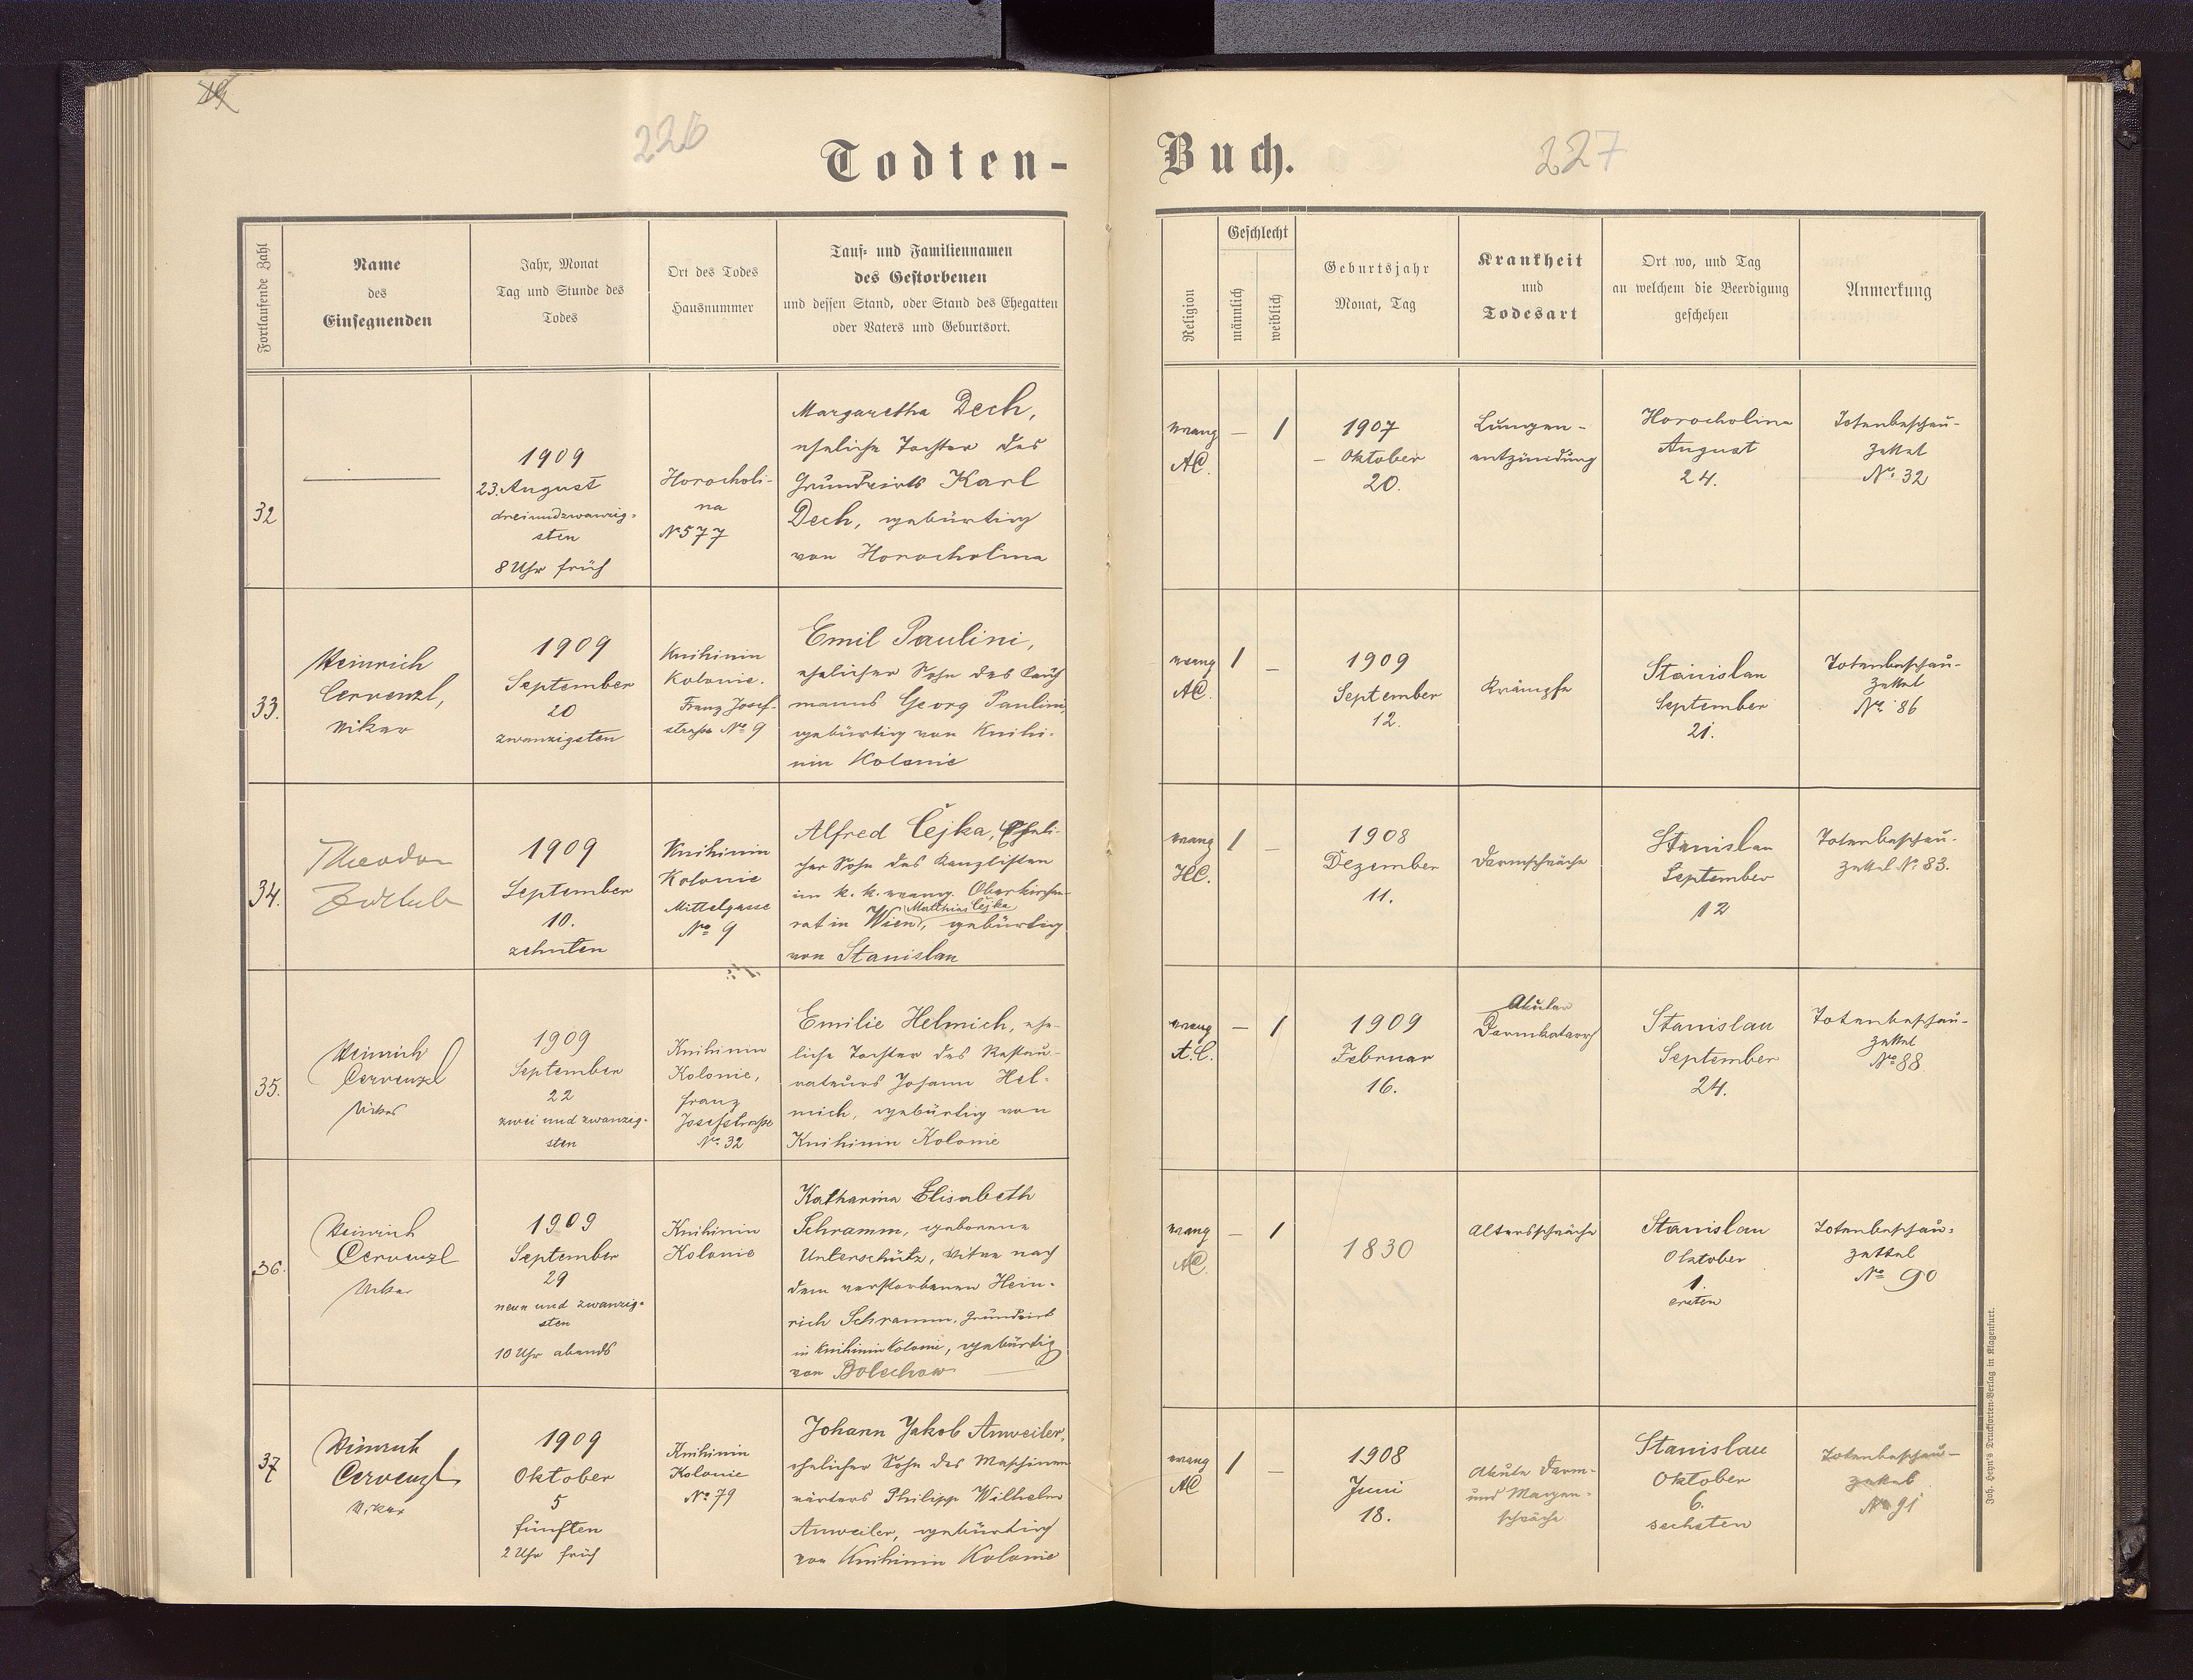 226
Todten-
Fortlaufende Zahl
Name
des
Einsegnenden
Jahr, Monat
Tag und Stunde des
Todes
Ort des Todes
Hausnummer
Tauf- und Familiennamen
des Gestorbenen
und dessen Stand, oder Stand des Ehegatten
oder Vaters und Geburtsort.
32
1909
23. August
dreiundzwanzig-
sten
8 Uhr früh
Horocholi-
na
No 577
Margaretha Dech,
eheliche Tochter des
Grundwirts Karl
Dech, gebürtig
von Horocholina
33.
Heinrich
Cervenzl,
Vikar
1909
September
20
zwanzigsten
Knihinin
Kolonie.
Franz Josef-
strasse No 9
Emil Paulini,
ehelicher Sohn des Kauf
manns Georg Paulini,
gebürtig von Knihi-
nin Kolonie
34.
Theodor
1909
September
10.
zehnten
Knihinin
Kolonie
Mittelgasse
No 9
Alfred Čejka, Eheli-
cher Sohn des Kanzlisten
im k. k. evang. Oberkirchen-
Matthias Čejka
rat in Wien, gebürtig
von Stanislau
35.
Heinrich
Cervenzl
Vikar
1909
September
22
zwei und zwanzig-
sten
Knihinin
Kolonie,
Franz
Josefstrasse
No 32
Emilie Helmich, ehe-
liche Tochter des Restau-
rateurs Johann Hel-
mich, gebürtig von
Knihinin Kolonie
36.
Heinrich
Cervenzl
Vikar
1909
September
29
neun und zwanzig-
sten
10 Uhr abends
Knihinin
Kolonie
Katharina Elisabeth
Schramm, geborene
Unterschütz, Witwe nach
dem verstorbenen Hein-
rich Schramm, Grundwirt
in Knihinin Kolonie, gebürtig
von Bolechow
37
Heinrich
Cervenzl
Vikar
1909
Oktober
5
fünften
2 Uhr früh
Knihinin
Kolonie
No 79
Johann Jakob Anweiler,
ehelicher Sohn des Maschinen
wärters Philipp Wilhelm
Anweiler, gebürtig
von Knihinin Kolonie
Buch.
227
Religion
Geschlecht
männlich
weiblich
Geburtsjahr
Monat, Tag
Krankheit
und
Todesart
Ort wo, und Tag
an welchem die Beerdigung
geschehen
Anmerkung
evang
AC.
— 1
1907
– Oktober
20.
Lungen-
entzündung
Horocholina
August
24.
Totenbeschau-
zettel
No 32
evang
AC.
1 –
1909
September
12.
Krämpfe
Stanislau
September
21.
Totenbeschau-
zettel
No 86
evang
HC.
1 –
1908
Dezember
11.
Darmschwäche
Stanislau
September
12
Totenbeschau-
zettel No 83.
evang
A.C.
— 1
1909
Februar
16.
Akuter
Darmkatarrh
Stanislau
September
24.
Totenbeschau-
zettel
No 88
evang
AC.
– 1
1830
Altersschwäche
Stanislau
Oktober
1.
ersten
Totenbeschau-
zettel
No 90
evang
AC
1 –
1908
Juni
18.
Akute Darm-
und Magen-
schwäche
Stanislau
Oktober
6.
sechsten
Totenbeschau-
zettel
No 91
Joh. Heyn's Drucksorten-Verlag in Klagenfurt.